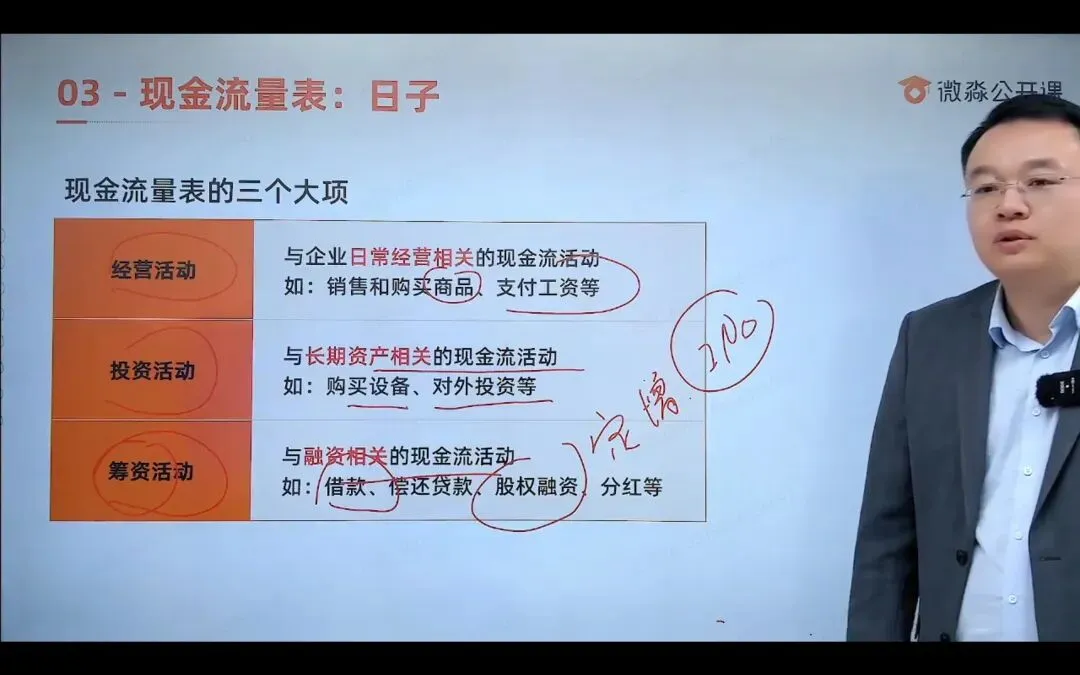 03 - 现金流量表：日子
微淼公开课
现金流量表的三个大项
经营活动
与企业日常经营相关的现金流活动
如：销售和购买商品、支付工资等
投资活动
与长期资产相关的现金流活动
如：购买设备、对外投资等
筹资活动
与融资相关的现金流活动
如：借款、偿还贷款、股权融资、分红等
定增
IPO